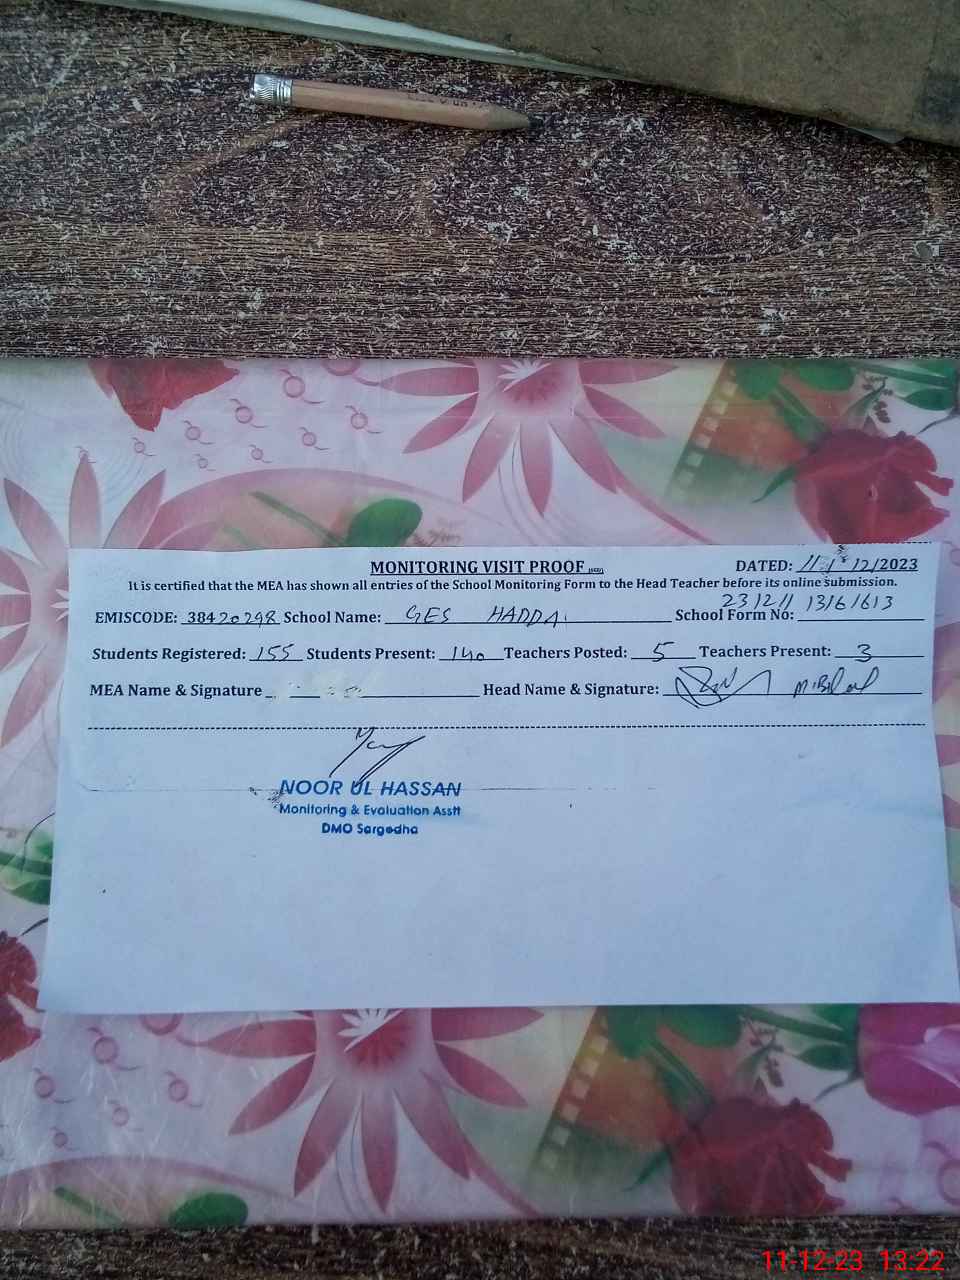 MONITORING VISIT PROOF DATED: 11/12/2023
It is certified that the MEA has shown all entries of the School Monitoring Form to the Head Teacher before its online submission.
EMISCODE: 38420298 School Name: GES HADDA School Form No: 231211 131613
Students Registered: 155 Students Present: 140 Teachers Posted: 5 Teachers Present: 3
MEA Name & Signature Head Name & Signature: M.Bilal
NOOR UL HASSAN
Monitoring & Evaluation Asstt
DMO Sargodha
11-12-23 13:22